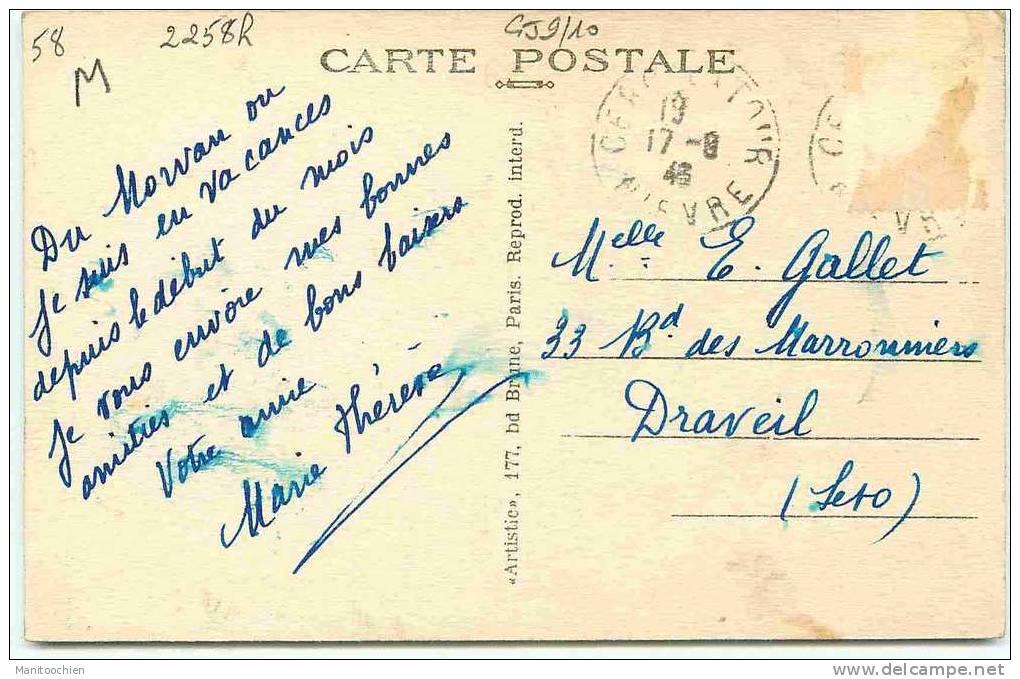 58
2258R
GJ9/10
M
CARTE POSTALE
19
17 -8
NIEVRE
Du Morvan ou
je suis en vacances
depuis le début du mois
je vous envoie mes bonnes
amitiés et de bons baisers
Votre amie
Marie Thérèse
«Artistic», 177, bd Brune, Paris. Reprod. interd.
Melle E. Gallet
33 Bd des Marronniers
Draveil
(Seto)
Manitoochien
www.delcampe.net